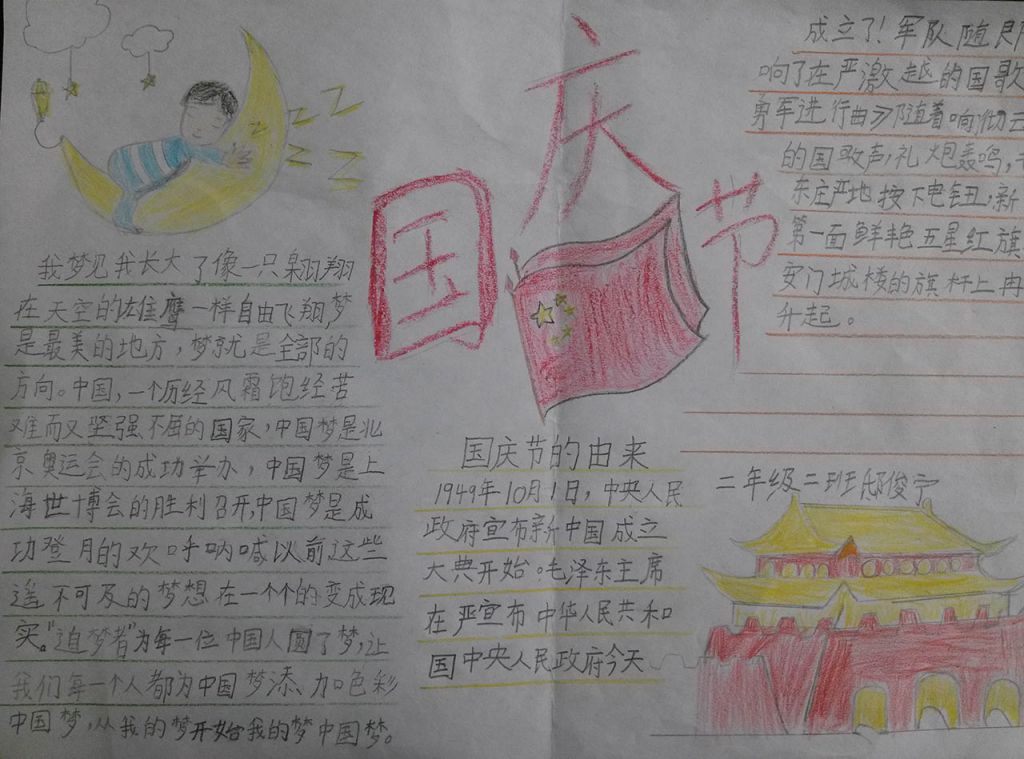 国庆节
我梦见我长大了像一只翱翔
在天空的雄鹰一样自由飞翔,梦
是最美的地方,梦就是全部的
方向。中国,一个历经风霜饱经苦
难而又坚强不屈的国家,中国梦是北
京奥运会的成功举办,中国梦是上
海世博会的胜利召开,中国梦是成
功登月的欢呼呐喊以前这些
遥不可及的梦想在一个个的变成现
实。"追梦者"为每一位中国人圆了梦,让
我们每一个人都为中国梦添加色彩
中国梦,从我的梦开始我的梦中国梦。
国庆节的由来
1949年10月1日,中央人民
政府宣布新中国成立
大典开始。毛泽东主席
在严宣布中华人民共和
国中央人民政府今天
成立了!军队随即
响了在严激越的国歌
勇军进行曲》随着响彻云
的国歌声,礼炮轰鸣,
东庄严地按下电钮,新
第一面鲜艳五星红旗
安门城楼的旗杆上冉
升起。
二年级二班邸俊宁